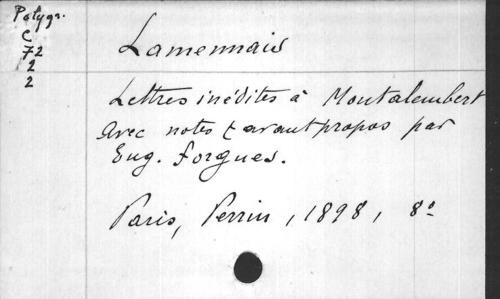 Polygr.
C
72
2
2
Lamennais
Lettres inédites à Montalembert
Avec notes & avant propos par
Eug. Forgues.
Paris, Perrin, 1898, 8°